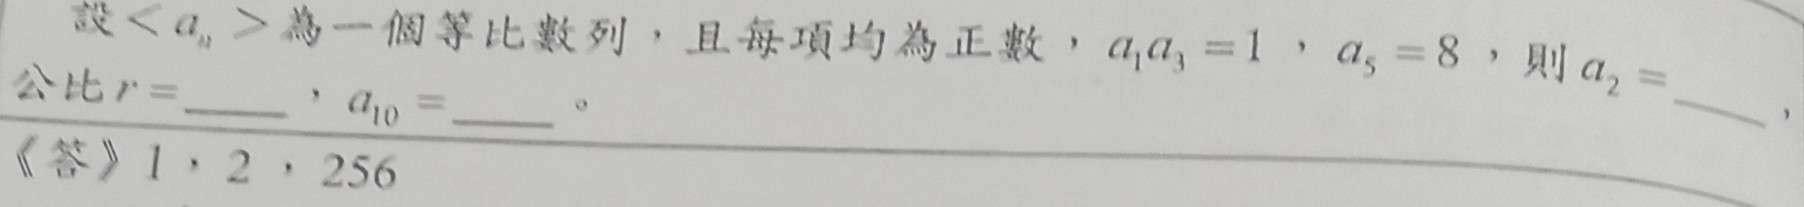 設 < aₙ > 為一個等比數列，且每項均為正數，a₁a₃ = 1，a₅ = 8，則 a₂ = ____，
公比 r = ____，a₁₀ = ____。
《答》1，2，256